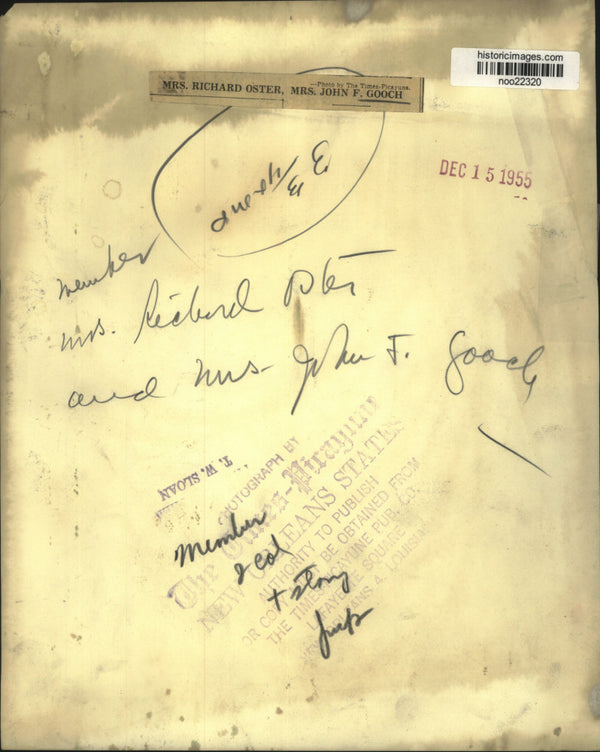 historicimages.com
noo22320
—Photo by The Times-Picayune.
MRS. RICHARD OSTER, MRS. JOHN F. GOOCH
DEC 15 1955
member
Mrs. Richard Oster
and Mrs. John F. Gooch
T. W. SLOAN
PHOTOGRAPH BY
The Times-Picayune
NEW ORLEANS STATES
AUTHORITY TO PUBLISH
OR COPY BE OBTAINED FROM
THE TIMES-PICAYUNE PUB. CO.
LAFAYETTE SQUARE
LOUISIANA
Member
2 col
+ story